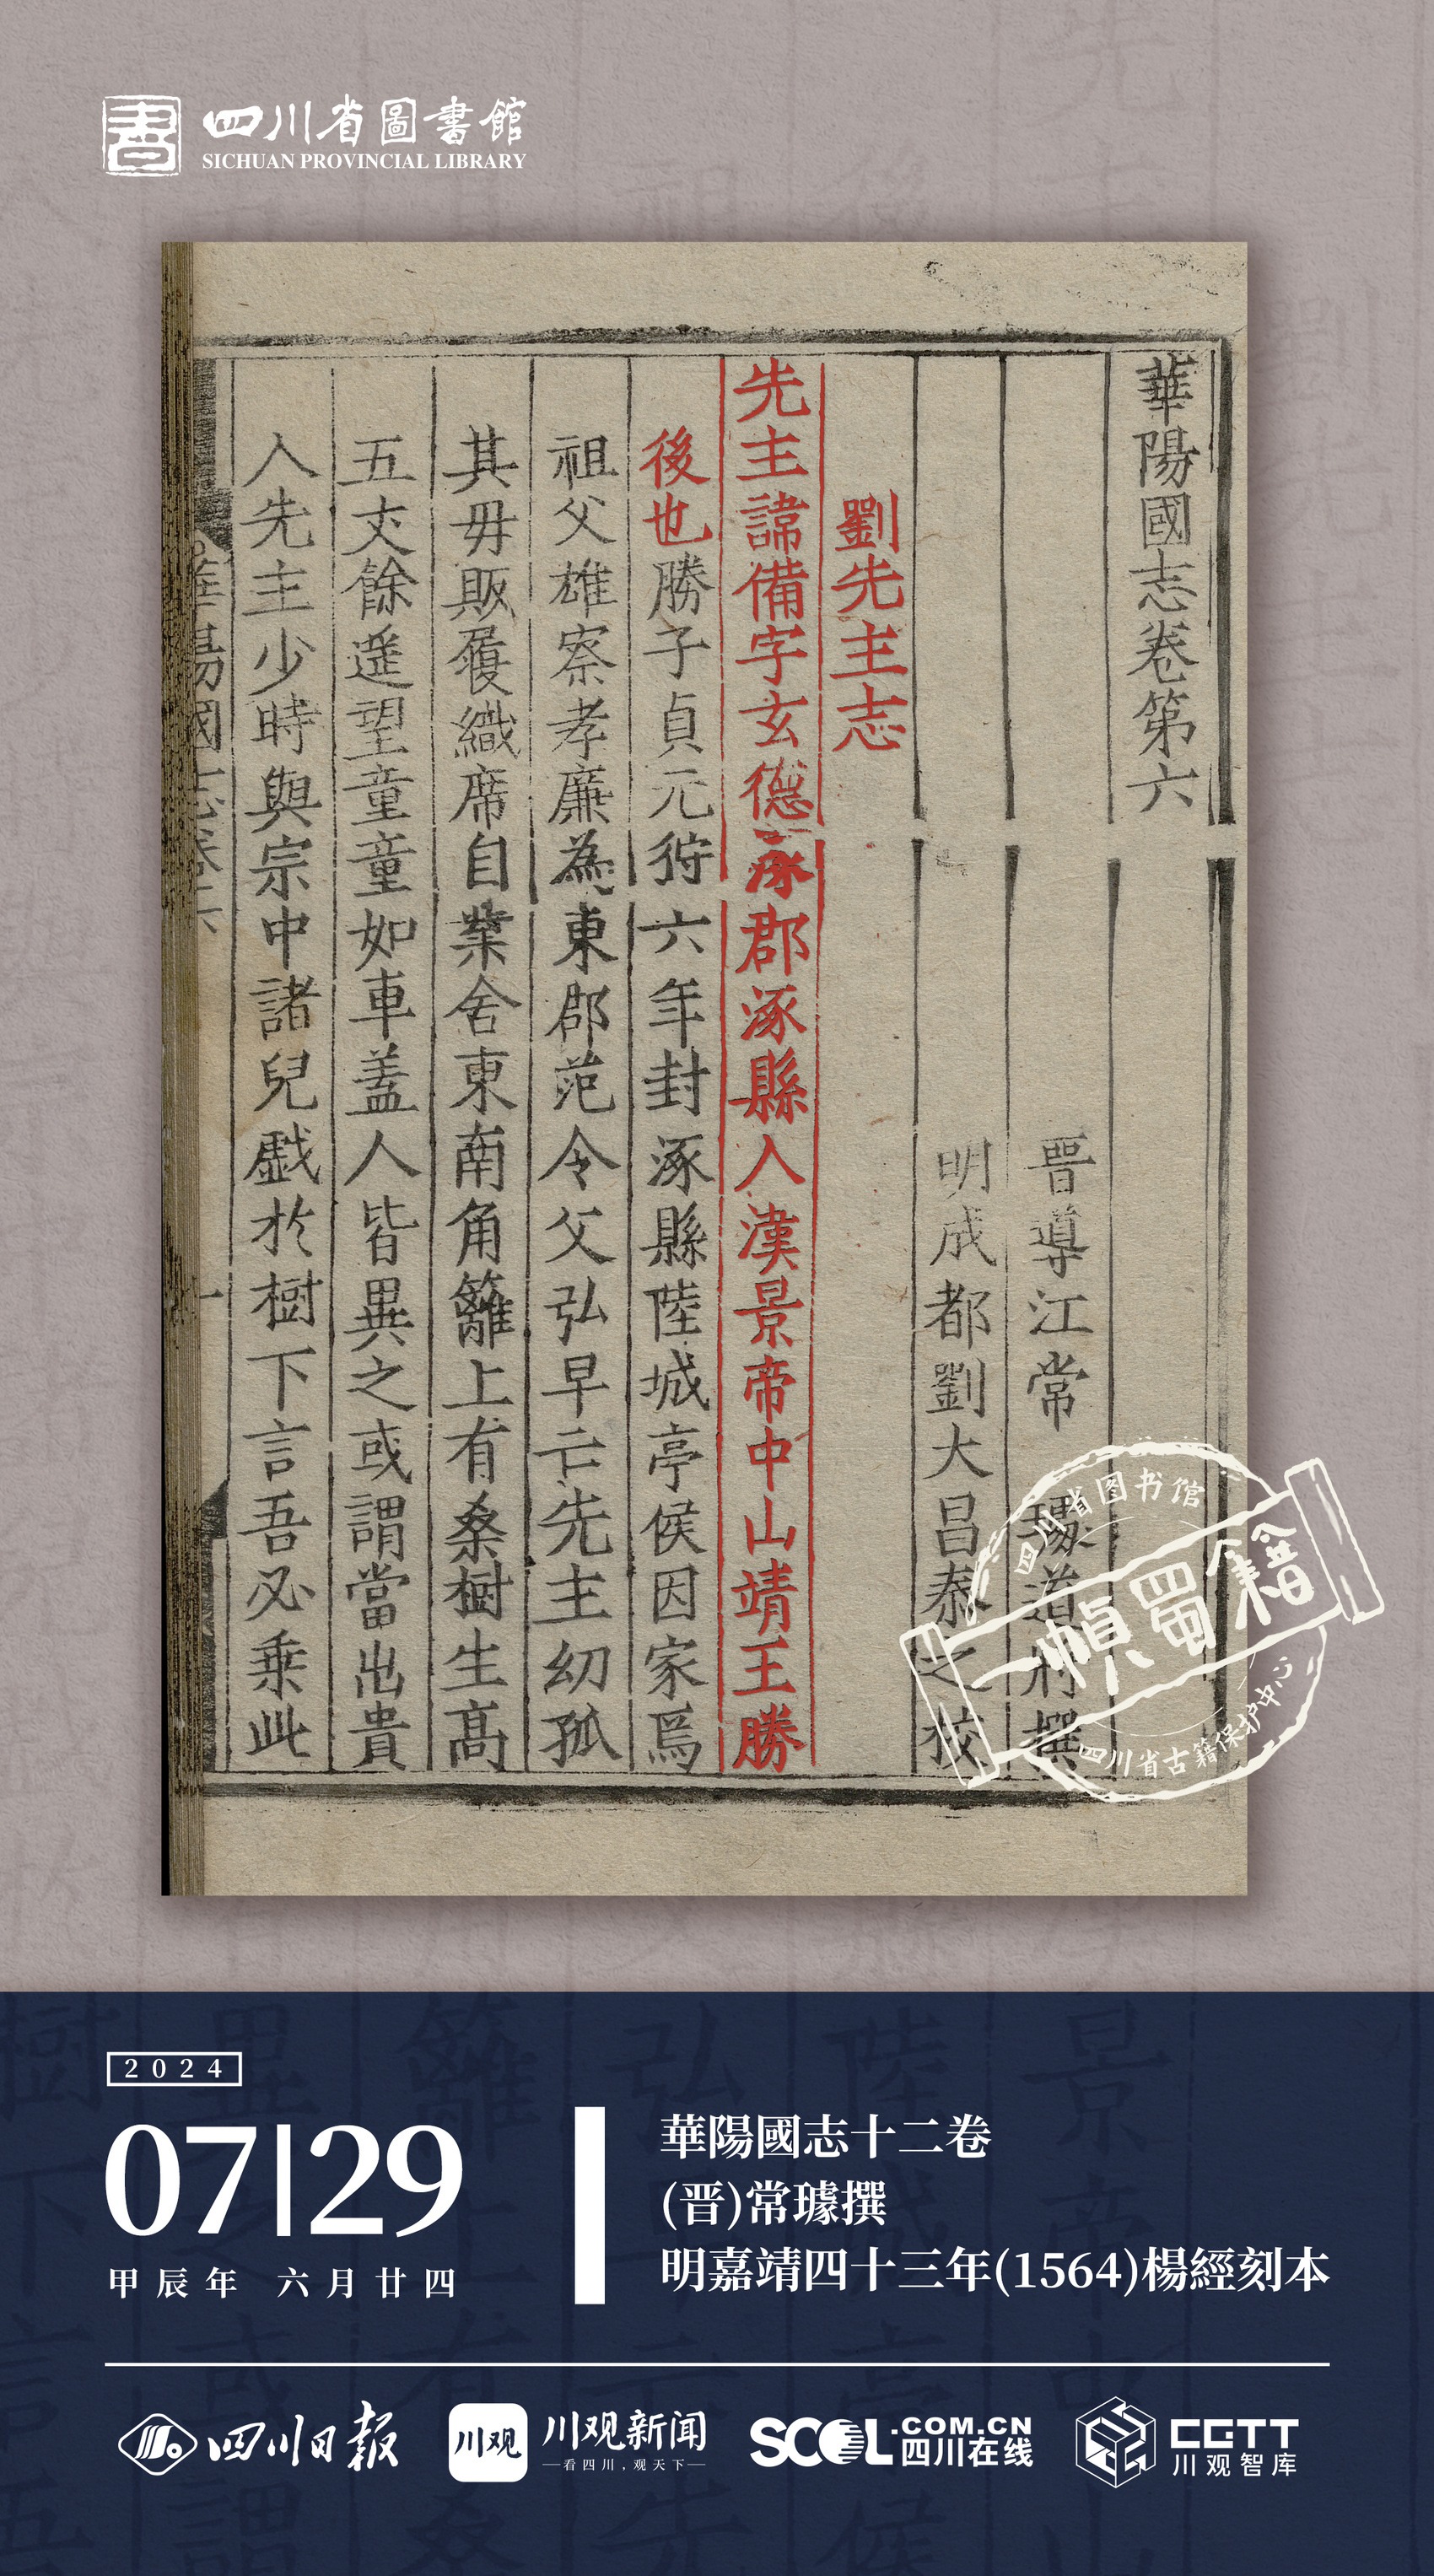 四川省圖書館
SICHUAN PROVINCIAL LIBRARY
華陽國志卷第六
晋導江常璩道將撰
明成都劉大昌泰之校
劉先主志
先主諱備字玄德涿郡涿縣人漢景帝中山靖王勝
後也勝子貞元狩六年封涿縣陸城亭侯因家焉
祖父雄察孝廉為東郡范令父弘早亡先主幼孤
其母販履織席自業舍東南角籬上有桑樹生高
五丈餘遥望童童如車蓋人皆異之或謂當出貴
人先主少時與宗中諸兒戲於樹下言吾必乗此
華陽國志卷六
一
四川省图书馆
一幀蜀籍
四川省古籍保护中心
2024
07|29
甲辰年 六月廿四
華陽國志十二卷
(晋)常璩撰
明嘉靖四十三年(1564)楊經刻本
四川日报
川观
川观新闻
看四川,观天下
SCOL.COM.CN
四川在线
CGTT
川观智库